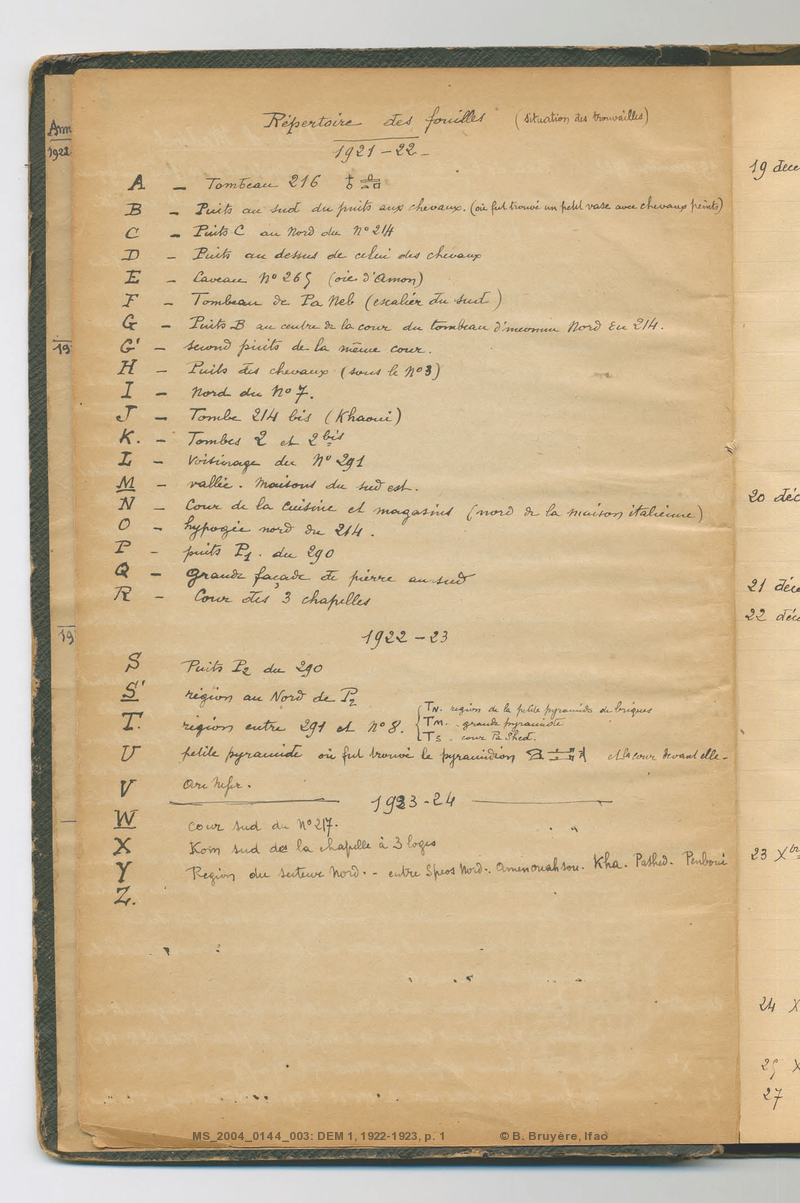 Répertoire des fouilles (situation des trouvailles)
1921-22
A — Tombeau 216
B — Puits au sud du puits aux chevaux. (où fut trouvé un petit vase avec chevaux peints)
C — Puits C au Nord du N° 214
D — Puits au dessus de celui des chevaux
E — Caveau N° 265 (oie d'Amon)
F — Tombeau de Pa Neb (escalier du sud)
G — Puits B au centre de la cour du tombeau d'inconnu Nord du 214.
G' — second puits de la même cour.
H — Puits des chevaux (sous le N° 3)
I — Nord du N° 7.
J — Tombe 214 bis (Khaoui)
K. — Tombes 2 et 2bis
L — Voisinage du N° 291
M — vallée. Maisons du sud est.
N — Cour de la cuisine et magasins (nord de la maison italienne)
O — hypogée nord du 214.
P — puits P1. du 290
Q — grande façade de pierre au sud
R — Cour des 3 chapelles
1922-23
S Puits P2 du 290
S' région au Nord de P2
T. région entre 291 et N° 8.
TN. région de la petite pyramide de briques
TM. grande pyramide
TS. cour Pa Shed.
U petite pyramide où fut trouvé le pyramidion et la cour devant elle-
V Ari Nefer.
1923-24
W cour sud du N° 217.
X Kom sud de la chapelle à 3 loges
Y Region du secteur Nord. - entre Speos Nord. Amenouahsou. Kha. Pashed. Penboui
Z.
Ann
1921
19
19
19 déce
20 déc
21 déce
22 déc
23 Xbre
24 X
25 X
27
MS_2004_0144_003: DEM 1, 1922-1923, p. 1 © B. Bruyère, Ifao